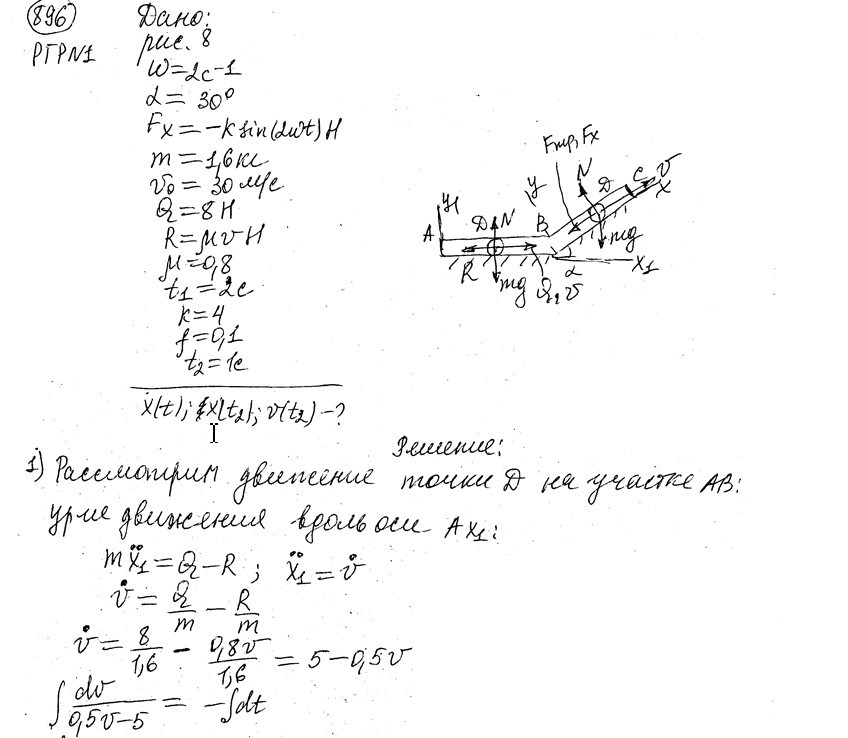 896
РГР№1
Дано:
рис. 8
ω=2с-1
α=30°
Fx=-k sin(2ωt) Н
m=1,6кг
v₀=30 м/с
Q=8 Н
R=μv Н
μ=0,8
t₁=2с
k=4
f=0,1
t₂=1с
x(t); x(t₂); v(t₂)-?
Fтр, Fx
N
y
D
C
v
x
mg
y₁
A
D
N
B
R
mg
Q, v
α
x₁
Решение:
1) Рассмотрим движение точки D на участке АВ:
ур-ие движения вдоль оси Ax₁:
mẍ₁=Q-R; ẍ₁=v̇
v̇=Q/m-R/m
v̇=8/1,6-0,8v/1,6=5-0,5v
∫dv/(0,5v-5)=-∫dt